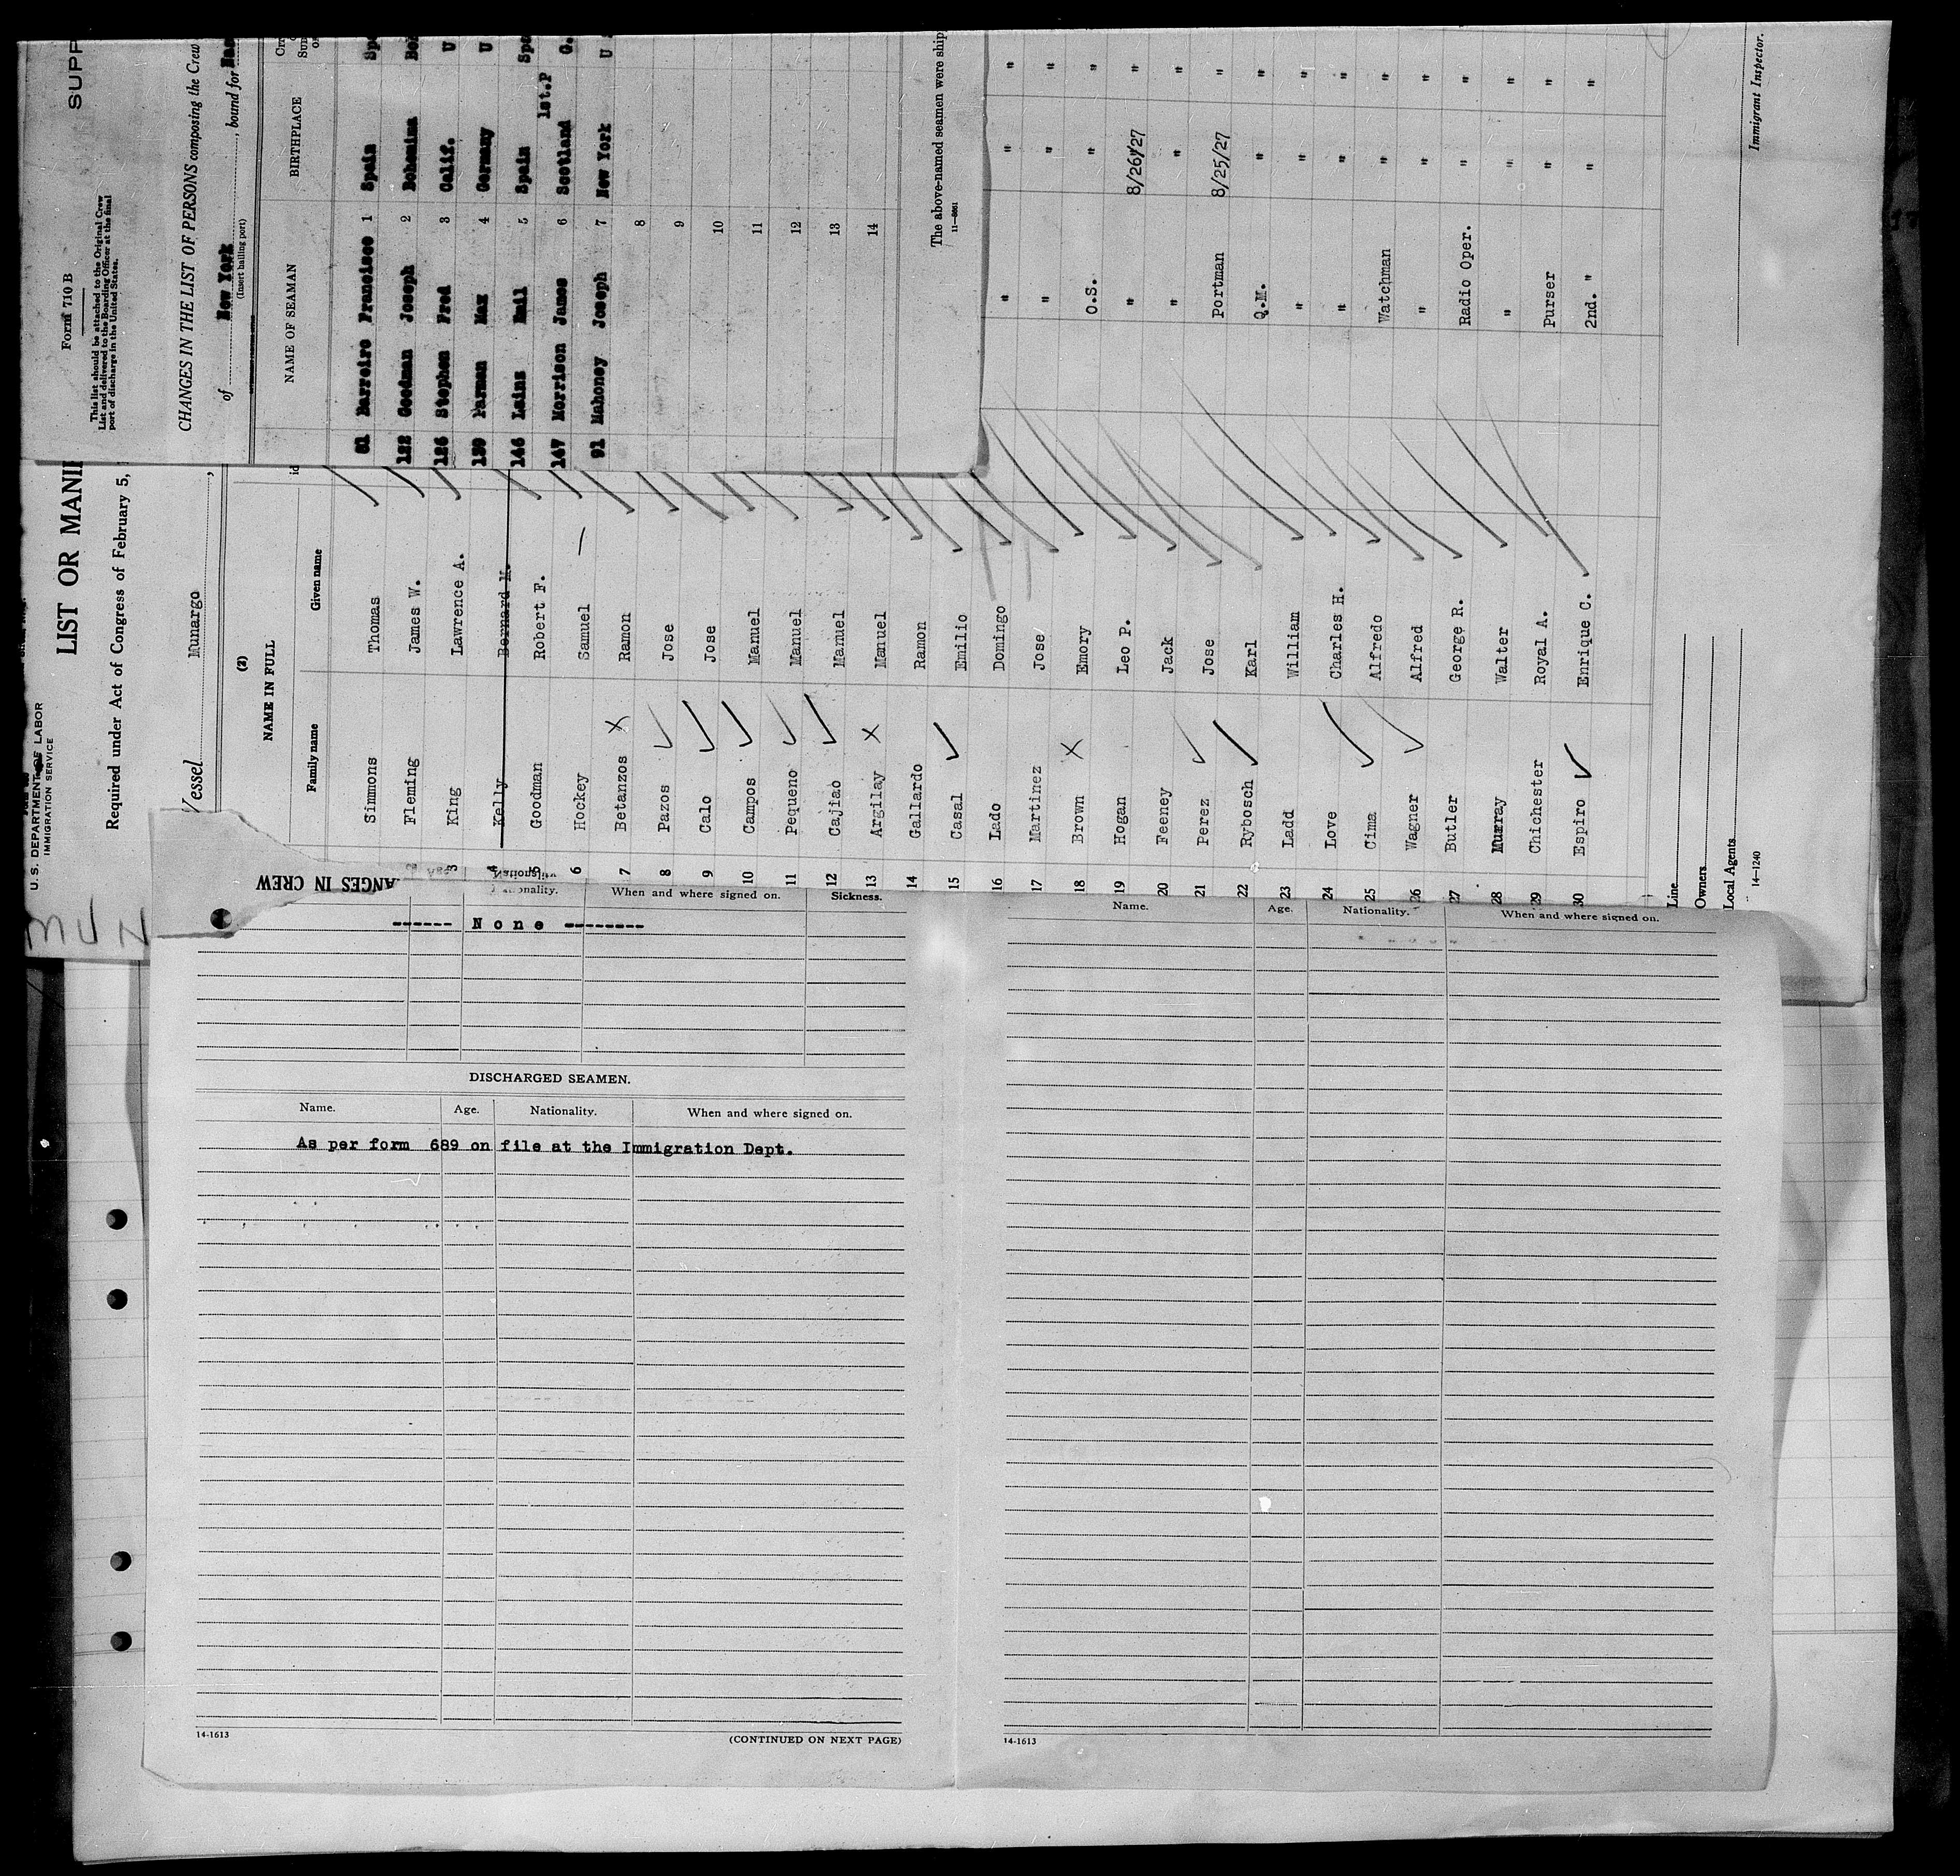 SUPP
Form 710 B
This list should be attached to the Original Crew
List and delivered to the Boarding Officer at the final
port of discharge in the United States.
CHANGES IN THE LIST OF PERSONS composing the Crew
of New York, bound for
(Insert hailing port)
NAME OF SEAMAN BIRTHPLACE
81 Barreiro Francisco 1 Spain
122 Goodman Joseph 2 Bohemina
126 Stephen Fred 3 Calif. U
139 Parman Max 4 Germany U
146 Lainz Emil 5 Spain
147 Morrison James 6 Scotland 1st.P G.
91 Mahoney Joseph 7 New York U
8
9
10
11
12
13
14
The above-named seamen were ship
U.S. DEPARTMENT OF LABOR
IMMIGRATION SERVICE
LIST OR MANI
Required under Act of Congress of February 5,
Vessel Munargo,
(2)
NAME IN FULL
Family name Given name
Simmons Thomas
Fleming James W.
3 King Lawrence A.
4 Kelly Bernard M.
5 Goodman Robert F.
6 Hockey Samuel —
7 Betanzos x Ramon
8 Pazos ✓ Jose
9 Calo ✓ Jose
10 Campos ✓ Manuel
11 Pequeno ✓ Manuel
12 Cajiao ✓ Manuel
13 Argilay x Manuel
14 Gallardo Ramon
15 Casal ✓ Emilio
16 Lado Domingo " " "
17 Martinez Jose " " "
18 Brown x Emory O.S. " "
19 Hogan Leo P. " 8/26/27 "
20 Feeney Jack " " "
21 Perez ✓ Jose Portman 8/25/27 "
22 Rybosch ✓ Karl Q.M. " "
23 Ladd William " " "
24 Love ✓ Charles H. " " "
25 Cima ✓ Alfredo Watchman " "
26 Wagner Alfred " " "
27 Butler George R. Radio Oper. " "
28 Murray Walter " " "
29 Chichester Royal A. Purser " "
30 Espiro ✓ Enrique C. 2nd. " " "
Line
Owners
Local Agents
14—1240
Immigrant Inspector.
MUN
ANGES IN CREW
When and where signed on. Sickness.
------ None --------
DISCHARGED SEAMEN.
Name. Age. Nationality. When and where signed on.
As per form 689 on file at the Immigration Dept.
14-1613 (CONTINUED ON NEXT PAGE)
Name. Age. Nationality. When and where signed on.
14-1613